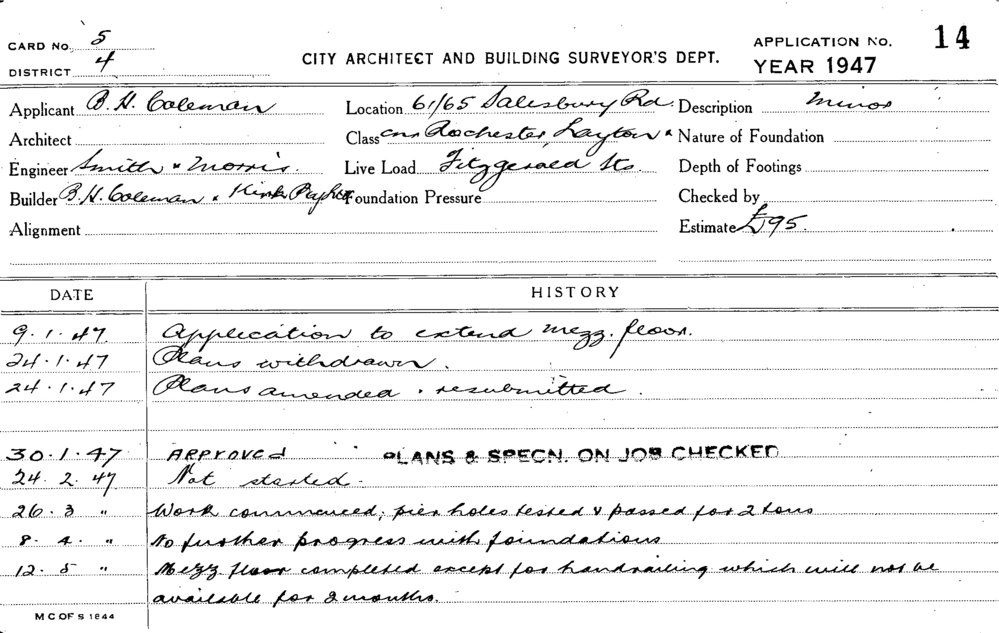 CARD No. 5
DISTRICT 4
CITY ARCHITECT AND BUILDING SURVEYOR'S DEPT.
APPLICATION No. 14
YEAR 1947
Applicant B. H. Coleman
Location 61/65 Salesbury Rd.
Description Minor
Architect
Class cnr Rochester, Layton &
Nature of Foundation
Engineer Smith & Morris.
Live Load Fitzgerald Sts.
Depth of Footings
Builder B. H. Coleman & Kirk
Foundation Pressure
Checked by
Alignment
Estimate £95.
DATE HISTORY
9.1.47. Application to extend mezz. floor.
24.1.47 Plans withdrawn.
24.1.47 Plans amended & resubmitted.
30.1.47 APPROVED PLANS & SPECN. ON JOB CHECKED
24.2.47 Not started.
26.3 " Work commenced; pier holes tested & passed for 2 tons
8.4. " No further progress with foundations
12.5 " Mezz floor completed except for handrailing which will not be
available for 2 months.
M C OF S 1844